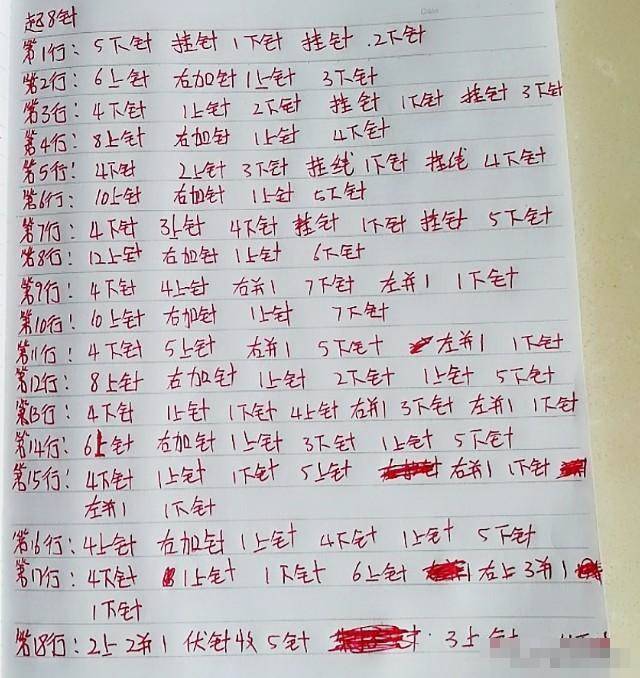 起8针
第1行: 5下针 挂针 1下针 挂针 .2下针
第2行: 6上针 右加针 1上针 3下针
第3行: 4下针 1上针 2下针 挂针 1下针 挂针 3下针
第4行: 8上针 右加针 1上针 4下针
第5行: 4下针 2上针 3下针 挂线 1下针 挂线 4下针
第6行: 10上针 右加针 1上针 5下针
第7行: 4下针 3上针 4下针 挂针 1下针 挂针 5下针
第8行: 12上针 右加针 1上针 6下针
第9行: 4下针 4上针 右并1 7下针 左并1 1下针
第10行: 10上针 右加针 1上针 7下针
第11行: 4下针 5上针 右并1 5下针 左并1 1下针
第12行: 8上针 右加针 1上针 2下针 1上针 5下针
第13行: 4下针 1上针 1下针 4上针 右并1 3下针 左并1 1下针
第14行: 6上针 右加针 1上针 3下针 1上针 5下针
第15行: 4下针 1上针 1下针 5上针 右并1 1下针
左并1 1下针
第16行: 4上针 右加针 1上针 4下针 1上针 5下针
第17行: 4下针 1上针 1下针 6上针 右上3并1
1下针
第18行: 2上2并1 伏针收5针 3上针